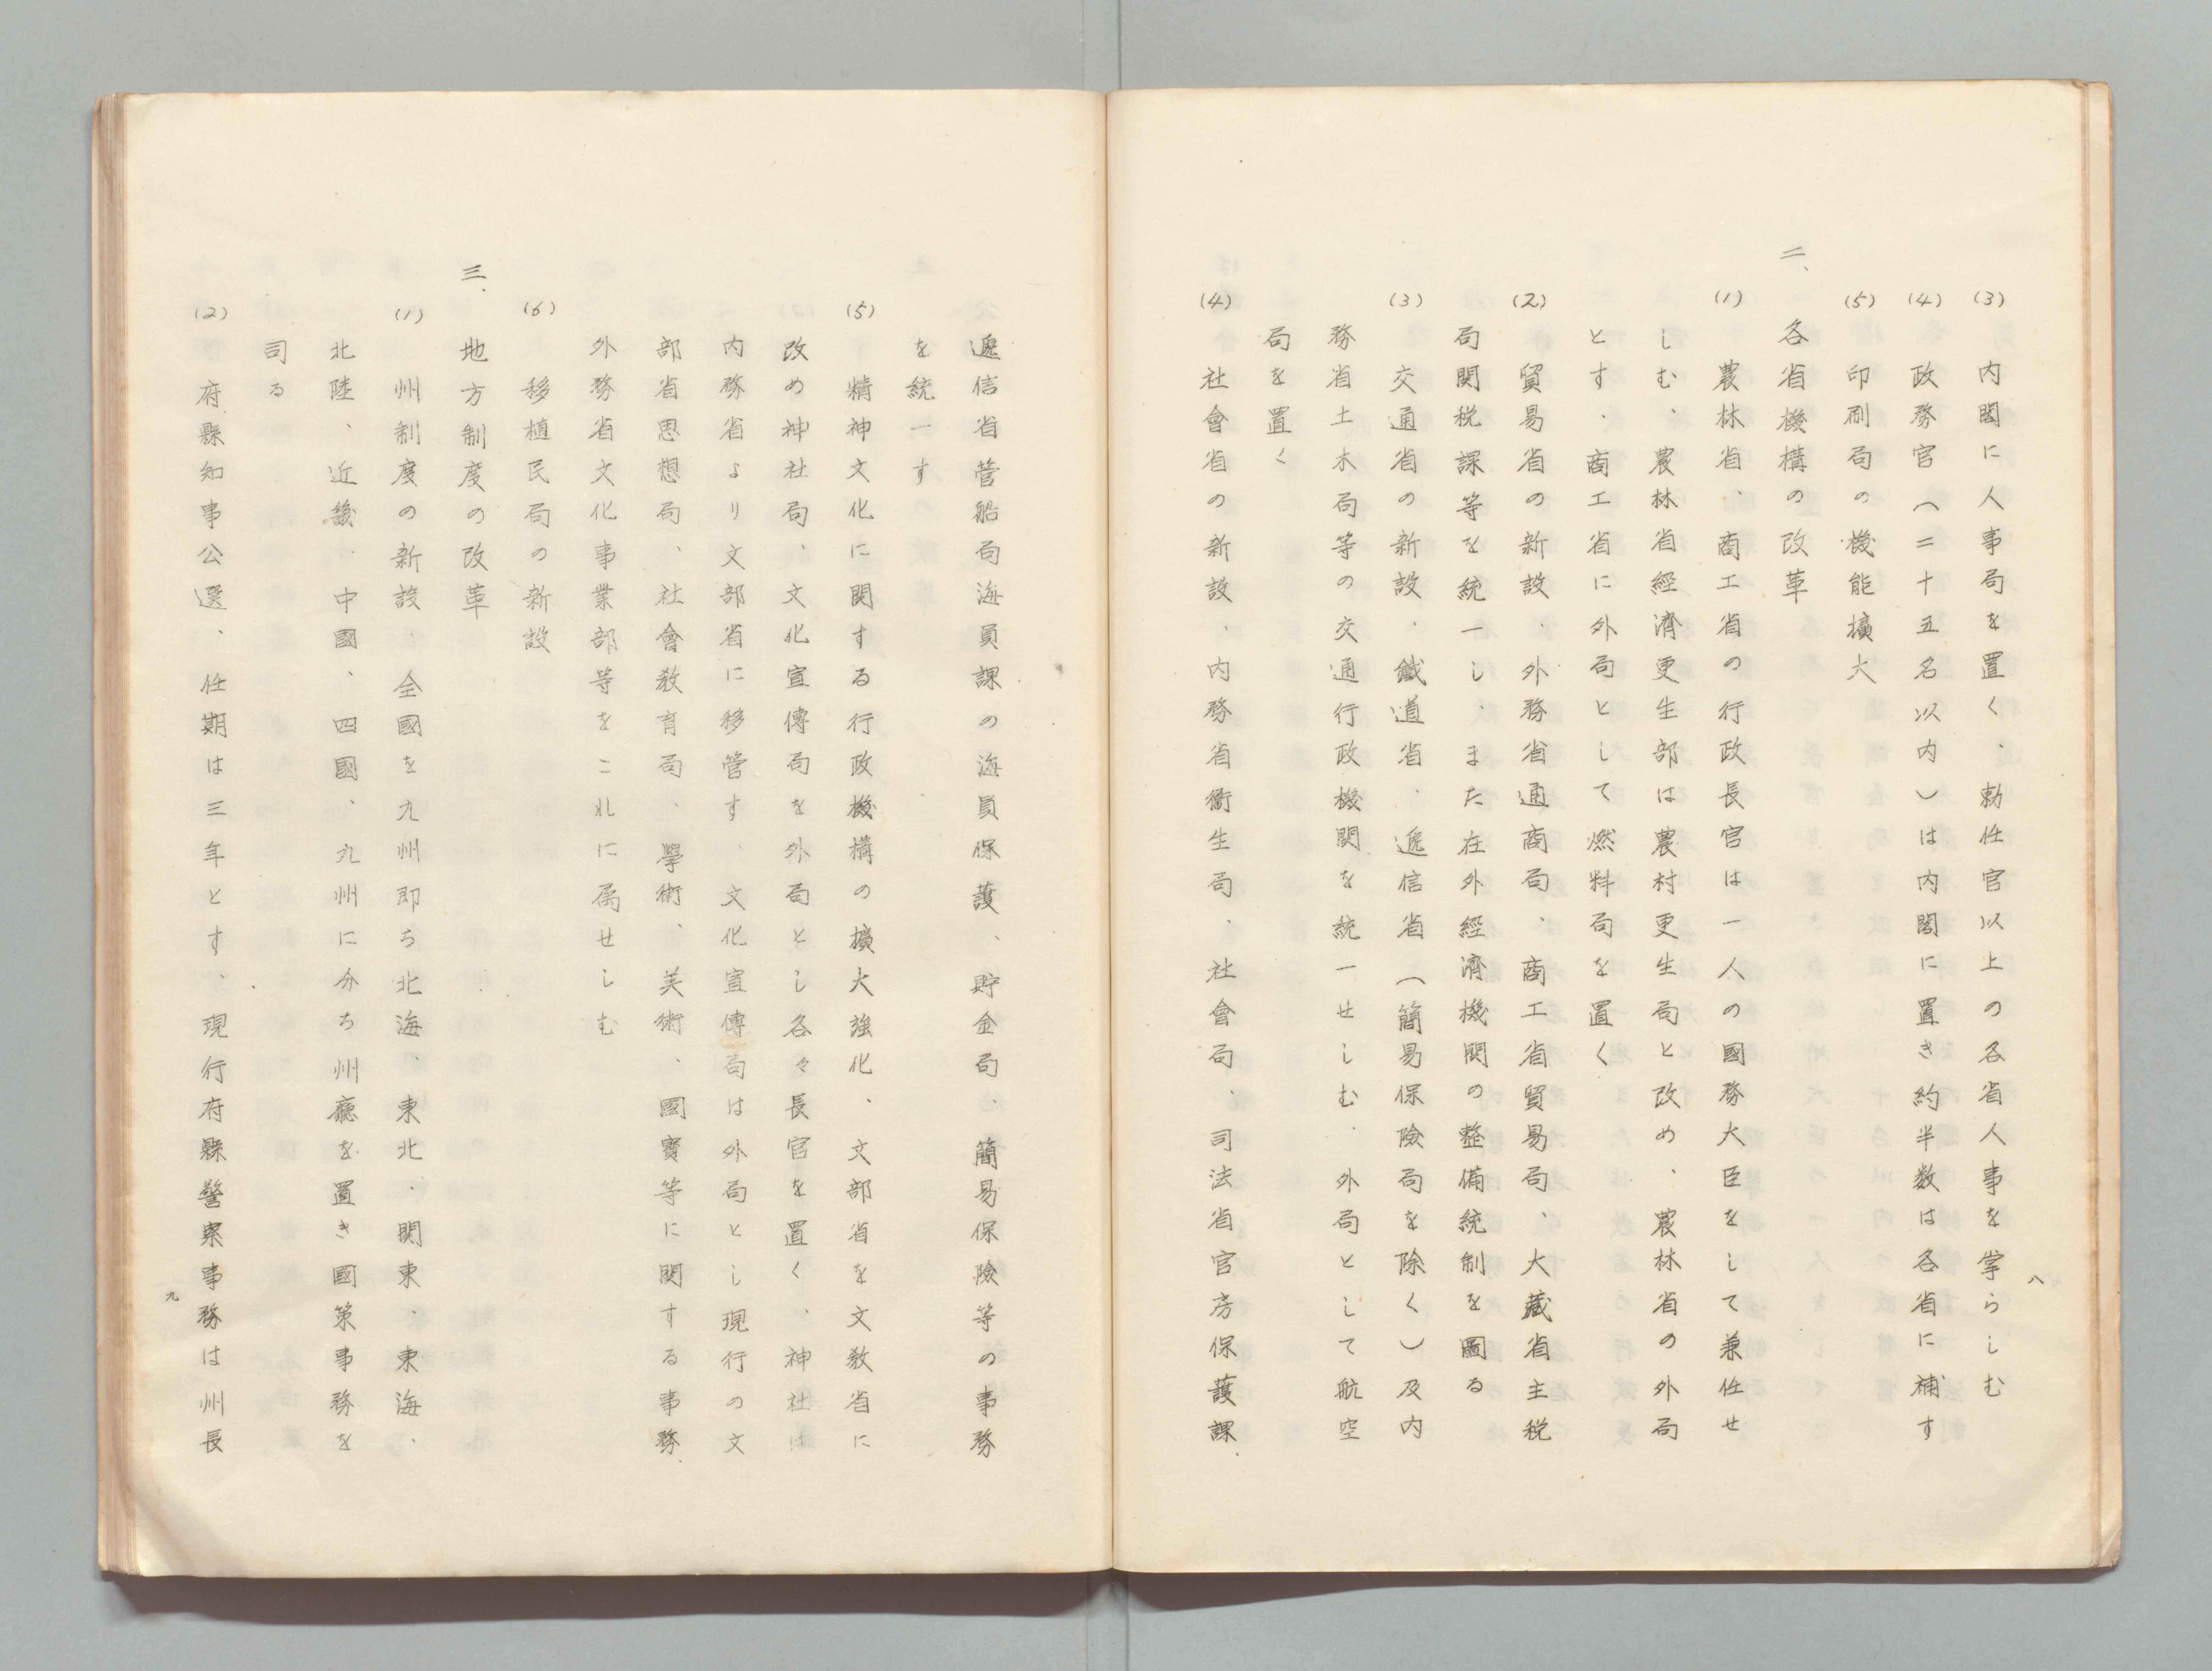 (3) 内閣に人事局を置く、勅任官以上の各省人事を掌らしむ
(4) 政務官(二十五名以内)は内閣に置き約半数は各省に補す
(5) 印刷局の機能擴大
二、各省機構の改革
(1) 農林省、商工省の行政長官は一人の國務大臣をして兼任せ
しむ、農林省經濟更生部は農村更生局と改め、農林省の外局
とす、商工省に外局として燃料局を置く
(2) 貿易省の新設、外務省通商局、商工省貿易局、大藏省主税
局関税課等を統一し、また在外經濟機関の整備統制を圖る
(3) 交通省の新設、鐵道省、遞信省(簡易保險局を除く)及内
務省土木局等の交通行政機関を統一せしむ、外局として航空
局を置く
(4) 社會省の新設、内務省衞生局、社會局、司法省官房保護課
八
遞信省管船局海員課の海員保護、貯金局、簡易保險等の事務
を統一す
(5) 精神文化に関する行政機構の擴大強化、文部省を文教省に
改め神社局、文化宣傳局を外局とし各々長官を置く、神社は
内務省より文部省に移管す、文化宣傳局は外局とし現行の文
部省思想局、社會教育局、學術、美術、國寶等に関する事務
外務省文化事業部等をこれに属せしむ
(6) 移植民局の新設
三、地方制度の改革
(1) 州制度の新設、全國を九州即ち北海、東北、関東、東海、
北陸、近畿、中國、四國、九州に分ち州廳を置き國策事務を
司る
(2) 府縣知事公選、任期は三年とす、現行府縣警察事務は州長
九